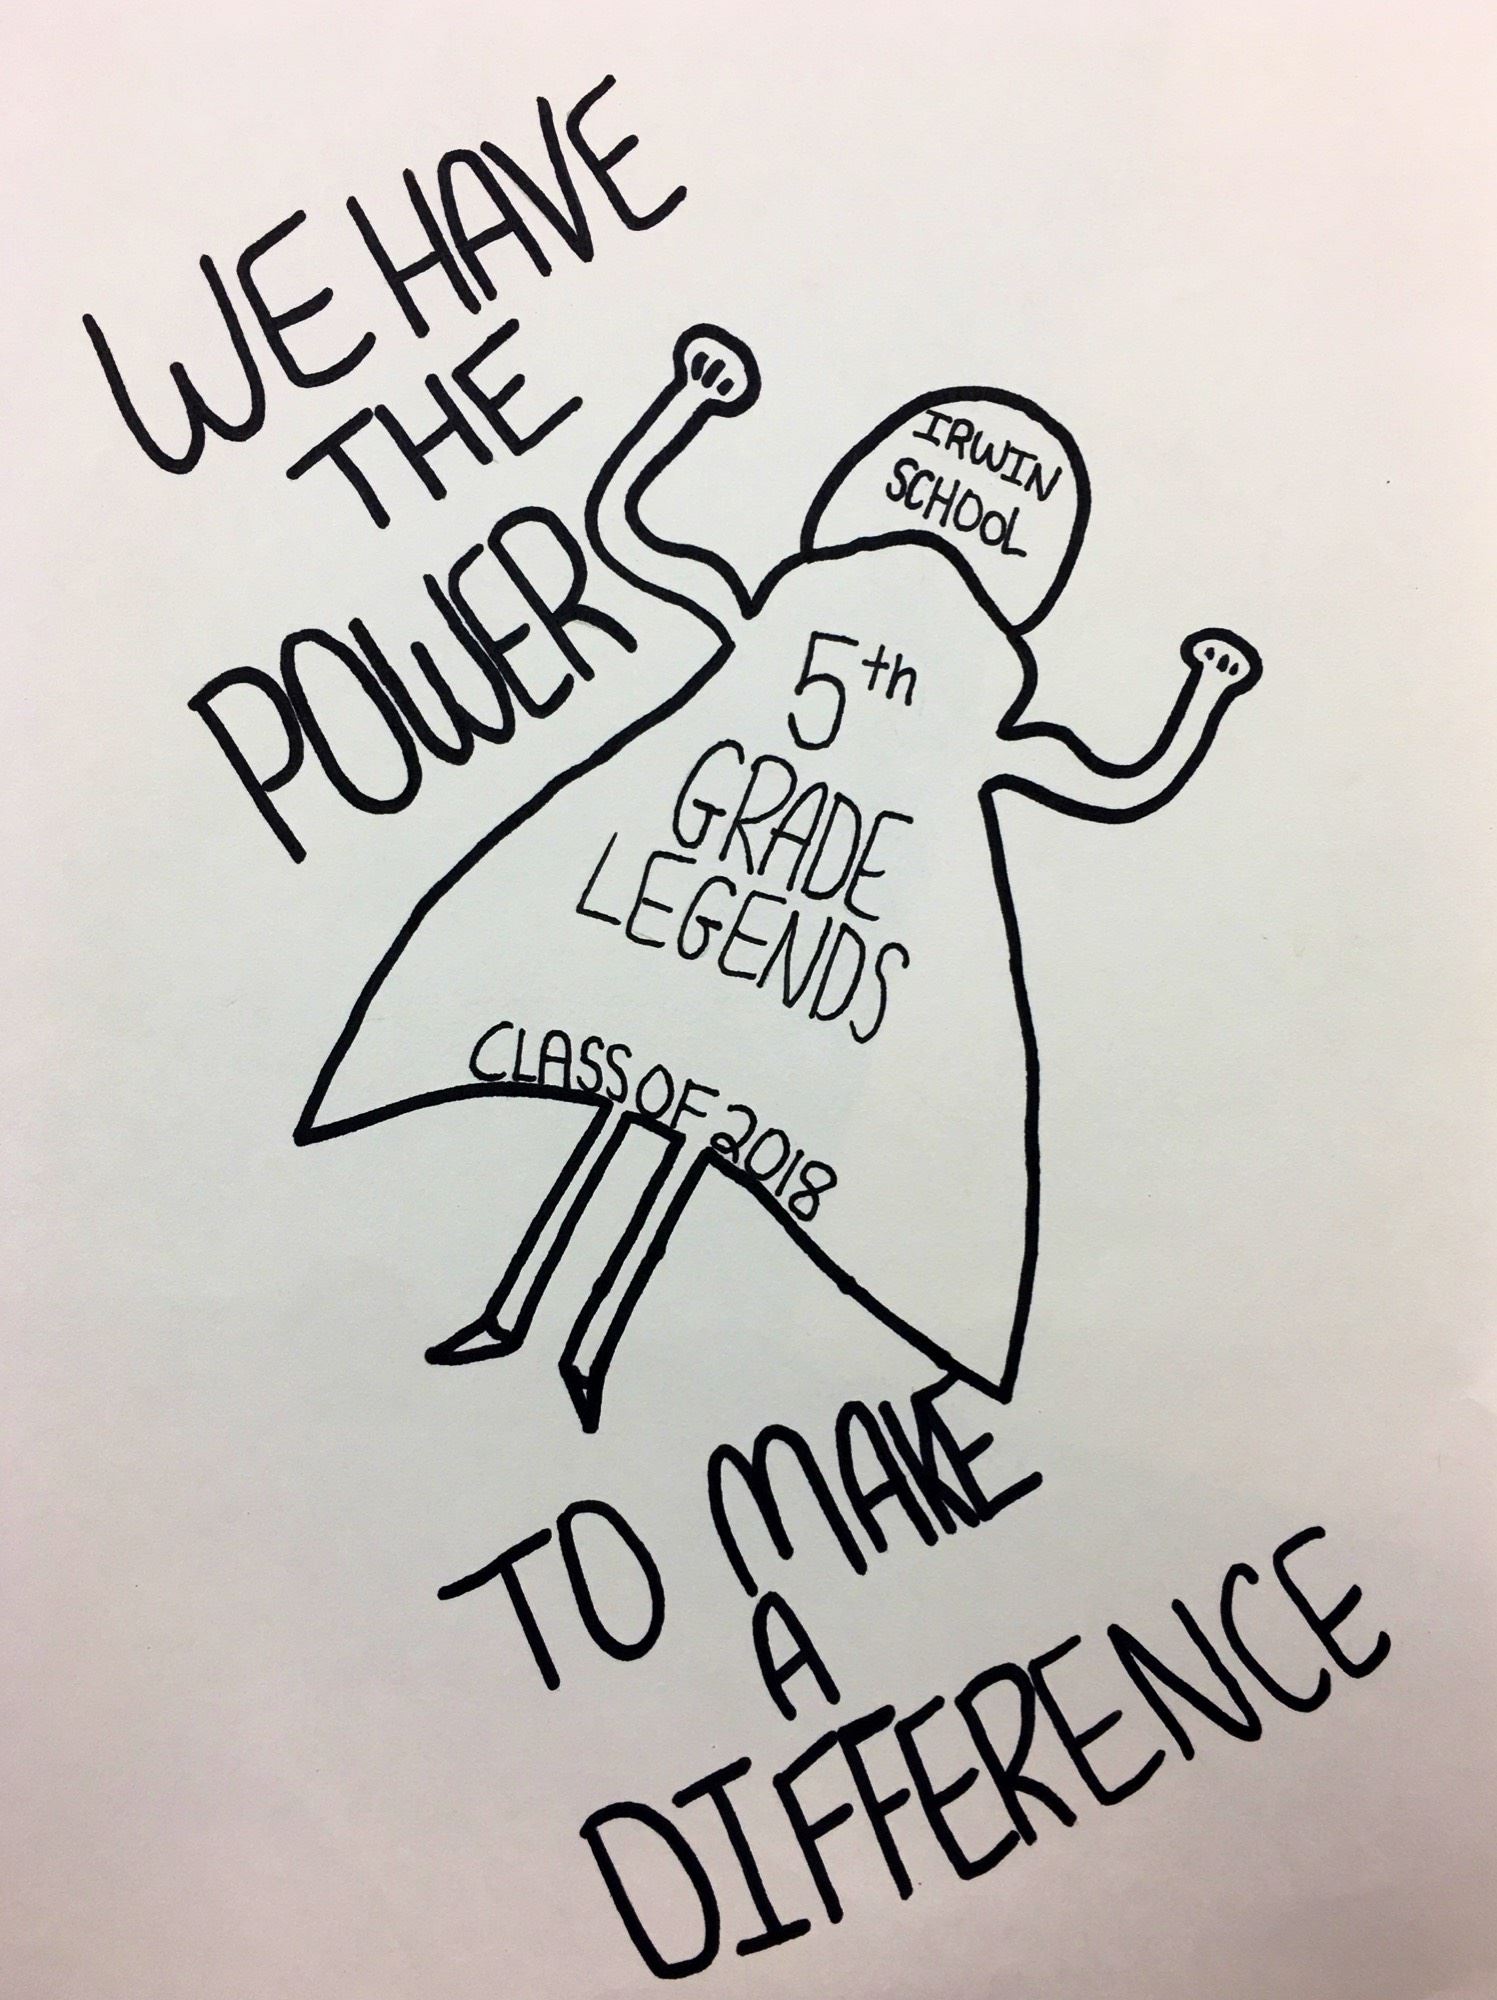 WE HAVE
THE
POWER
IRWIN
SCHOOL
5th
GRADE
LEGENDS
CLASS OF 2018
TO MAKE
A
DIFFERENCE